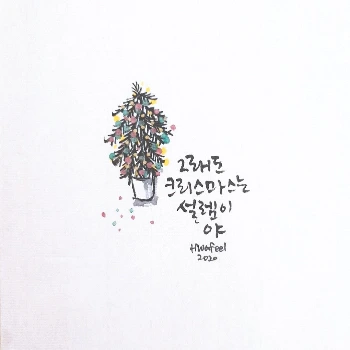 그래도
크리스마스는
설렘이
야
Hwafeel
2020